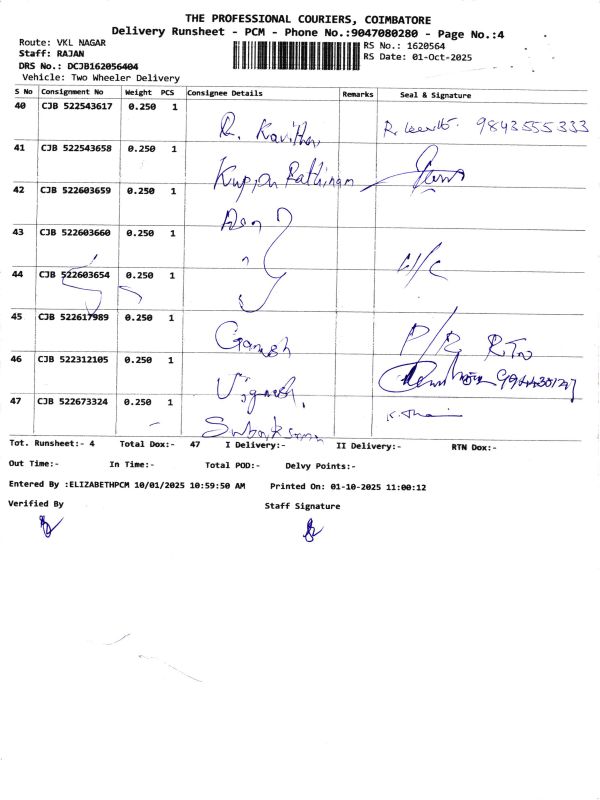 THE PROFESSIONAL COURIERS, COIMBATORE
Delivery Runsheet - PCM - Phone No.:9047080280 - Page No.:4
Route: VKL NAGAR
RS No.: 1620564
Staff: RAJAN
RS Date: 01-Oct-2025
DRS No.: DCJB162056404
Vehicle: Two Wheeler Delivery
S No Consignment No Weight PCS Consignee Details Remarks Seal & Signature
40 CJB 522543617 0.250 1
R. Kavitha 9843555333
41 CJB 522543658 0.250 1
Kuppu Rathinam
42 CJB 522603659 0.250 1
43 CJB 522603660 0.250 1
44 CJB 522603654 0.250 1
45 CJB 522617989 0.250 1
Ganesh P/R RTN
46 CJB 522312105 0.250 1
Vignesh.
47 CJB 522673324 0.250 1
Tot. Runsheet:- 4 Total Dox:- 47 I Delivery:- II Delivery:- RTN Dox:-
Out Time:- In Time:- Total POD:- Delvy Points:-
Entered By :ELIZABETHPCM 10/01/2025 10:59:50 AM Printed On: 01-10-2025 11:00:12
Verified By Staff Signature